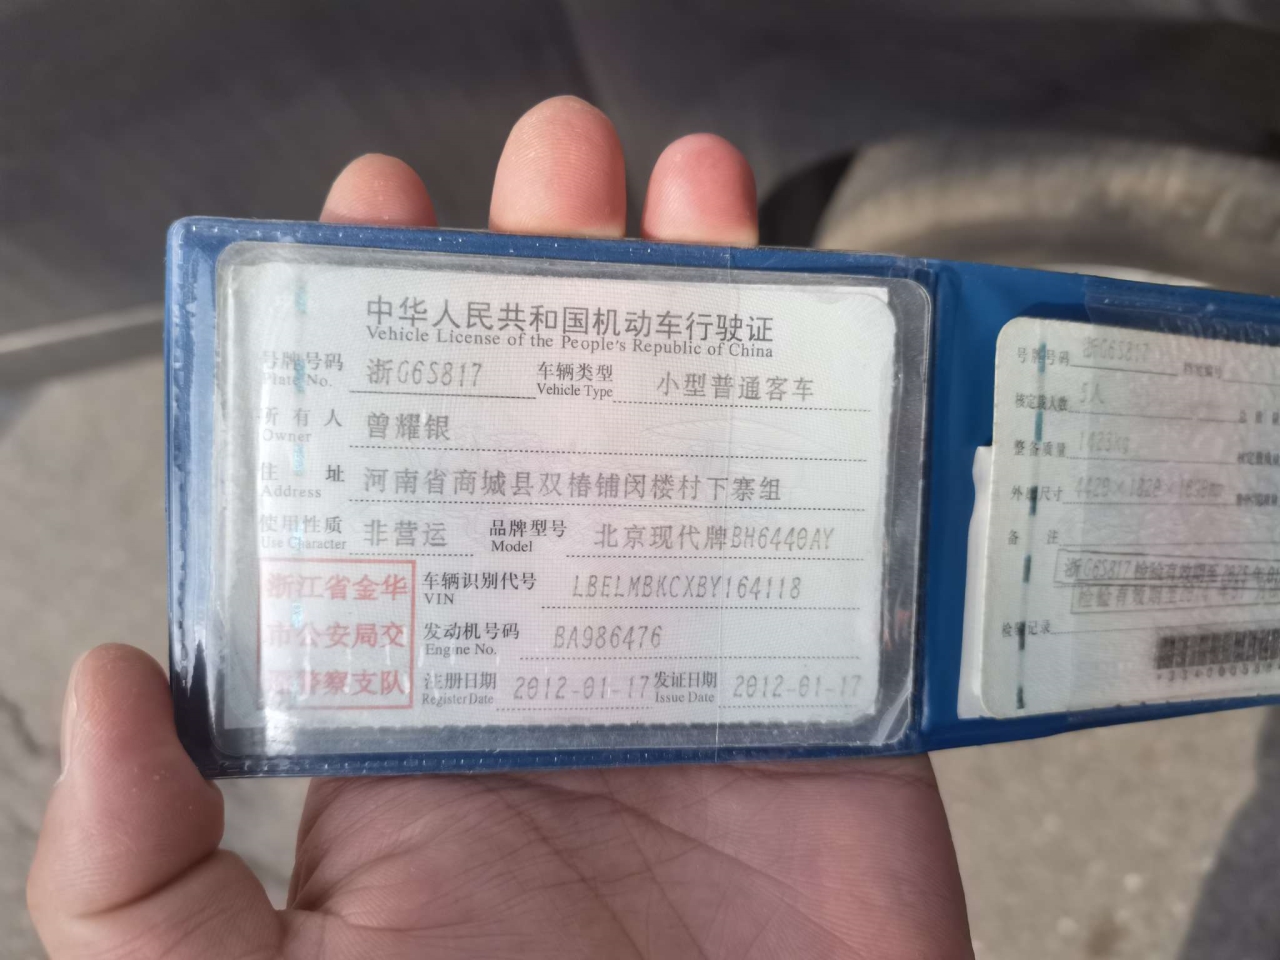 中华人民共和国机动车行驶证
Vehicle License of the People's Republic of China
号牌号码 浙G6S817 车辆类型 小型普通客车
Plate No. Vehicle Type
所有人 曾耀银
Owner
住址 河南省商城县双椿铺闵楼村下寨组
Address
使用性质 非营运 品牌型号 北京现代牌BH6440AY
Use Character Model
浙江省金华
市公安局交
通警察支队
车辆识别代号 LBELMBKCXBY164118
VIN
发动机号码 BA986476
Engine No.
注册日期 2012-01-17 发证日期 2012-01-17
Register Date Issue Date
号牌号码 浙G6S817 档案编号
核定载人数 5人
整备质量
外廓尺寸
备注
浙G6S817
检验记录